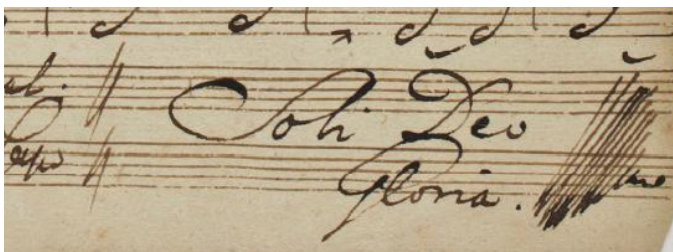 Soli Deo
Gloria.